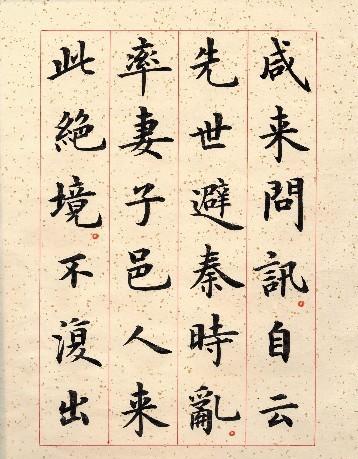 咸来問訊自云
先世避秦時亂
率妻子邑人来
此絶境不復出